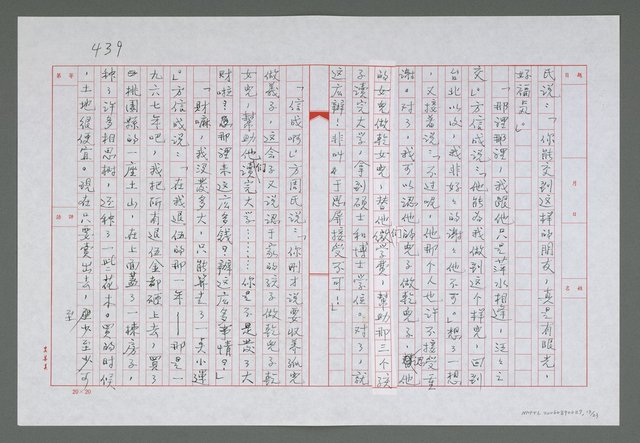 439
民說：「你能交到這樣的朋友，真是有眼光，
好福氣。」
「那裡那裡，我跟他只是萍水相逢，泛泛之
交。」方信成說：「他能為我做到這個樣兒，回到
台北以後，我非好好的謝謝他不可。」想了一想
，又接著說：「不過呢，他那個人也許不接受重
謝。對了，我可以認他的兒子做乾兒子，認他
的女兒做乾女兒，替他們繳學費，幫助那三個孩
子讀完大學，拿到碩士和博士學位。對了，就
這麼辦！非叫于思屏接受不可！」
「信成啊！」方周民說：「你剛才說要收養孤兒
做義子，這會子又說認于家的孩子做乾兒子乾
女兒，幫助他們讀完大學……你是不是發了大
財啦？怎那裡來這麼多錢？辦這麼多事情？」
「財嘛，我沒發多大，只能算走了一點小運
。」方信成說：「在我退伍的那一年——那是一
九六七年吧，我把所有退伍金都砸上去，買了
桃園縣的一座土山，在上面蓋了一棟房子，
種了許多相思樹，還種了一些花木。買的時候
，土地很便宜。現在只要賣出去，至少至少可
第 頁
題目
月 日
姓名
評語
20×20